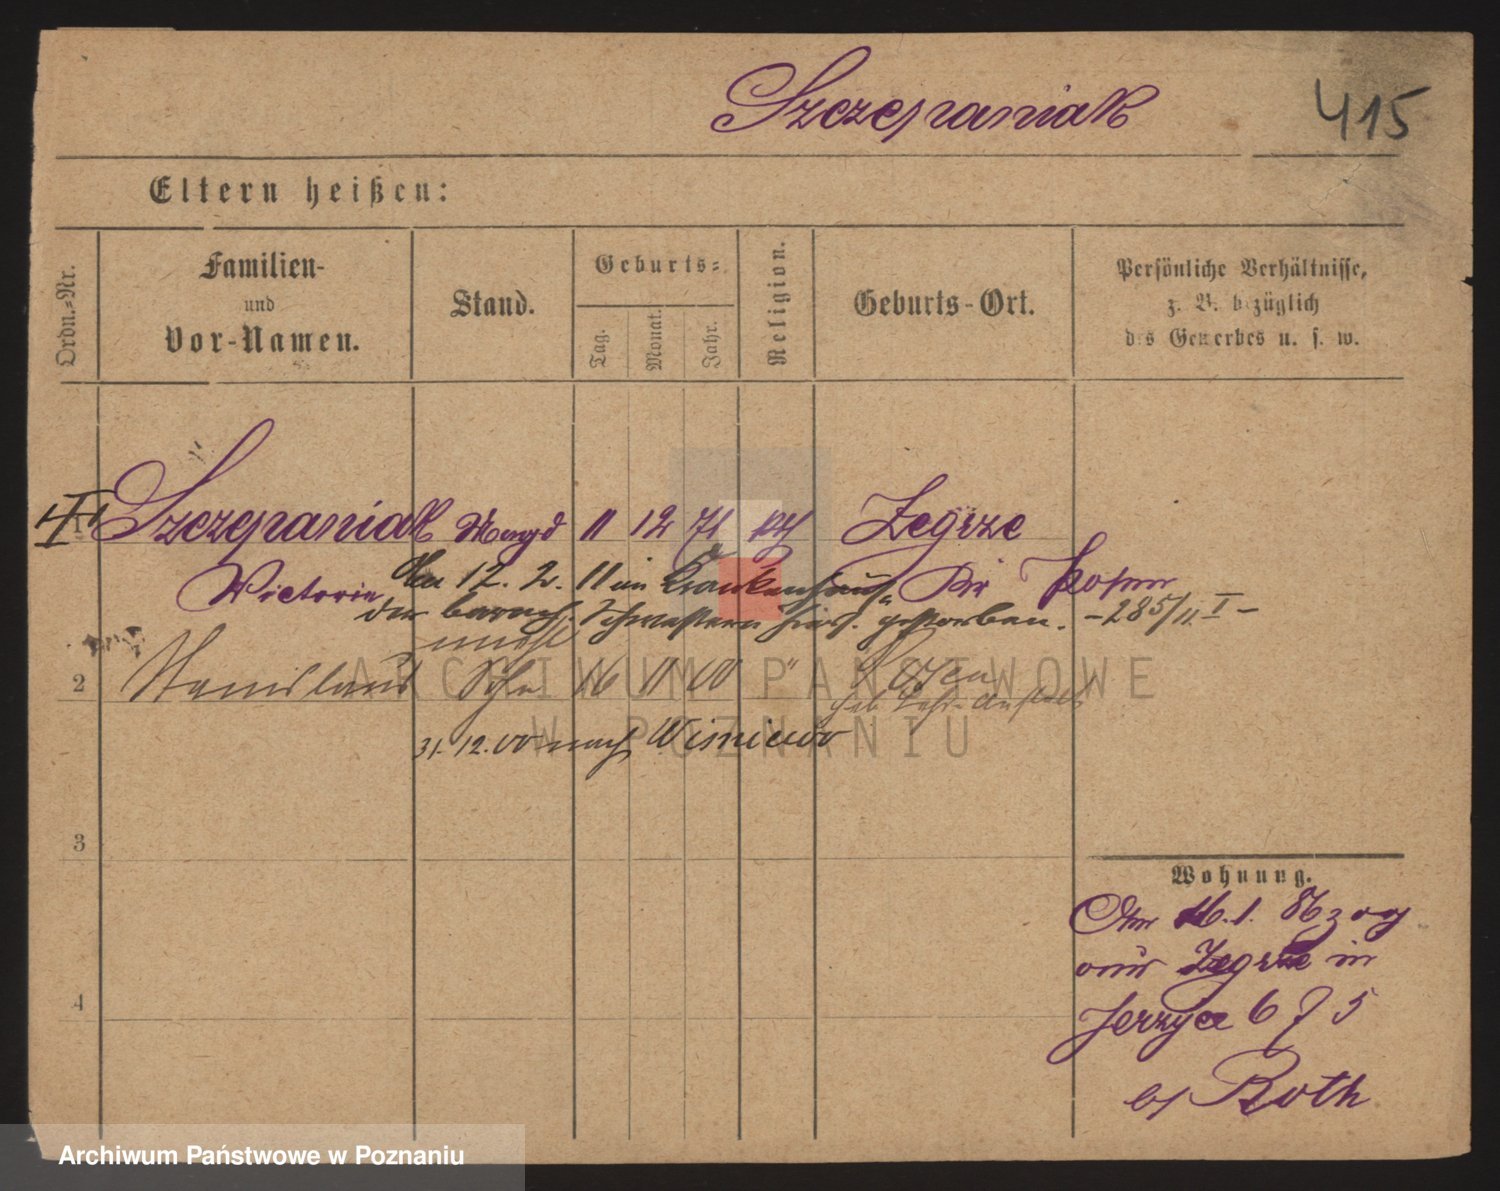 Szczepaniak
415
Eltern heißen:
Ordn.-Nr.
Familien-
und
Vor-Namen.
Stand.
Geburts-
Tag.
Monat.
Jahr.
Religion.
Geburts-Ort.
Persönliche Verhältnisse,
z. B. bezüglich
des Gewerbes u. s. w.
1 Szczepaniak Magd 11 12 71 kth Zegrze
Victoria Kr Posen
Am 12. 2. 11 im Krankenhaus
der barmh. Schwestern hier. gestorben. - 285/11 I -
unehl
2 Stanislaus Sohn 16 11 00 " Posen
31. 12. 00 nach Wisniewo
3
4
Wohnung.
Am 16. 1. 87 zog
von Zegrze in
Jersyce 6 75
b/ Roth
ARCHIWUM PAŃSTWOWE
W POZNANIU
Archiwum Państwowe w Poznaniu